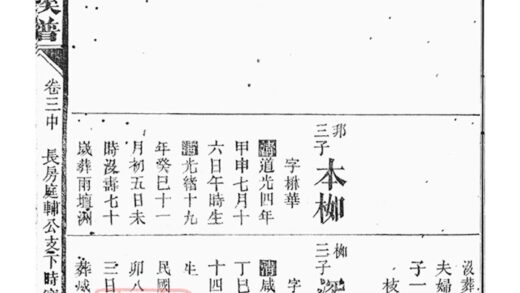 邦三子
本柳
清道光四年
甲申七月十
六日午時生
清光緒十九
年癸巳十一
月初五日未
時沒壽七十
歲葬雨壇洲
沒葬
夫婦
子一
枝
柳三子
字
清咸
丁巳
十四
生
民國
卯八
三日
葬
族譜
卷三中 長房庭輔公支下時